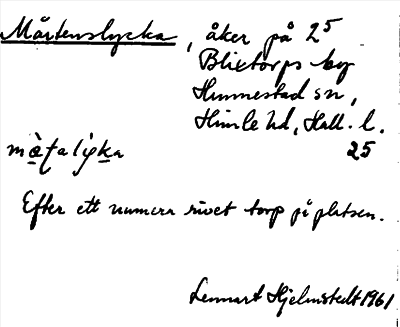 Mårtenslycka, åker på 2⁵
Blixtorps by
Hunnestad sn,
Himle hd, Hall. l.
25
Efter ett numera rivet torp på platsen.
Lennart Hjelmstedt 1961